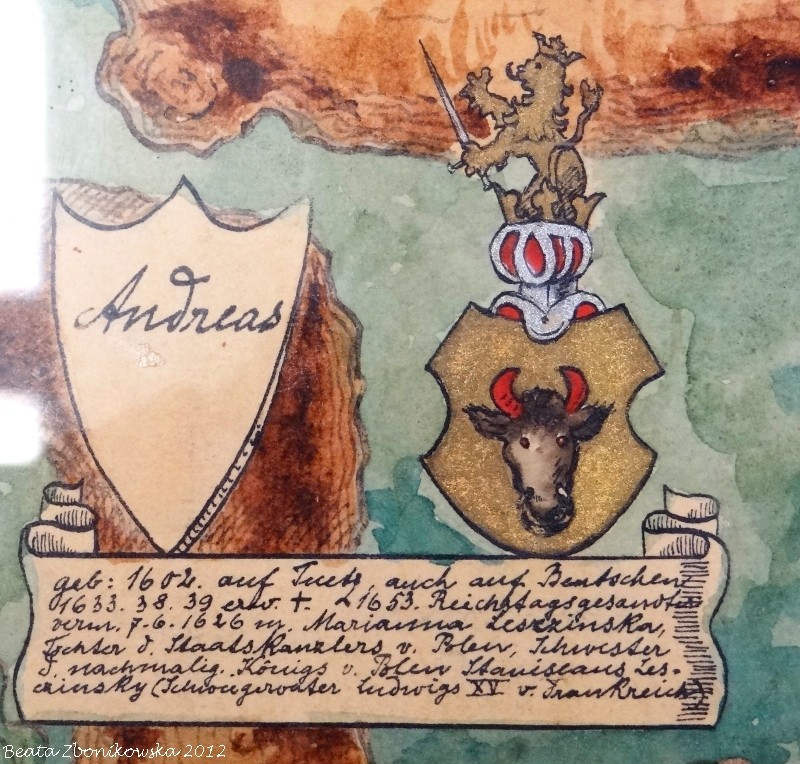 Andreas
geb: 1602. auf Tuetz, auch auf Bentschen
1633. 38. 39 erw. +. 1653. Reichstagsgesandter
verm. 7.6.1626 m. Marianna Leszzinska,
Tochter d. Staatskanzlers v. Polen, Schwester
d. nachmalig. Königs v. Polen Stanislaus Les-
czinsky (Schwiegervater Ludwigs XV v. Frankreich)
Beata Zbonikowska 2012